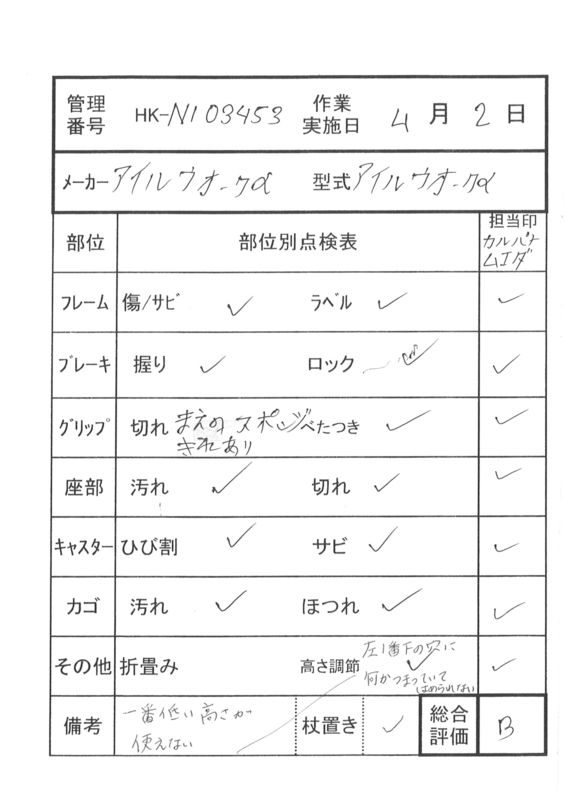 管理番号 HK-N103453 作業実施日 4月2日
メーカー アイルウオークα 型式 アイルウオークα
部位 部位別点検表 担当印
カルバナ
ムエダ
フレーム 傷/サビ ✓ ラベル ✓ ✓
ブレーキ 握り ✓ ロック ✓ ✓
グリップ 切れ まえのスポンジ べたつき ✓ ✓
きれあり
座部 汚れ ✓ 切れ ✓ ✓
キャスター ひび割 ✓ サビ ✓ ✓
カゴ 汚れ ✓ ほつれ ✓ ✓
その他 折畳み 高さ調節 ✓ ✓
左1番下の穴に
何かつまっていて
はめられない
備考 一番低い高さが 杖置き ✓ 総合評価 B
使えない